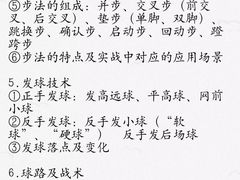 ⑤步法的组成：并步、交叉步（前交
叉、后交叉）、垫步（单脚、双脚）、
跳接步、确认步、启动步、回动步、蹬
跨步
⑥步法的特点及实战中对应的应用场景
5.发球技术
①正手发球：发高远球、平高球、网前
小球
②反手发球：反手发小球（“软
球”、“硬球”） 反手发后场球
③发球落点及变化
6.球路及战术